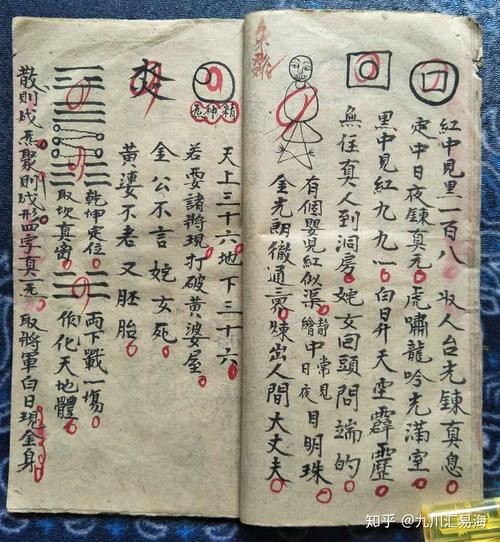 紅中見黑一百八 収人台光鍊真息
定中日夜鍊真元 虎嘯龍吟光滿室
黑中見紅九九一 白日昇天空霹靂
無位真人到洞房 姹女回頭問端的
有個嬰児紅似 靜中常見目明珠
繪 日夜
金光朗徹通三界 煉出人間大丈夫
精神炁
天上三十六 地下三十六
若要諸將現 打破黃婆屋
金公不言姹女死
黃婆不老又胚胎
乾坤定位 両下戰一塲
取坎真离 作化天地體
散則成炁聚則成形四字真一炁 取將軍白日現金身
知乎 @九川汇易海